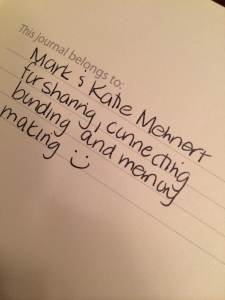 This journal belongs to:
Mark & Katie Mehnert
for sharing, connecting
bonding and memory
making